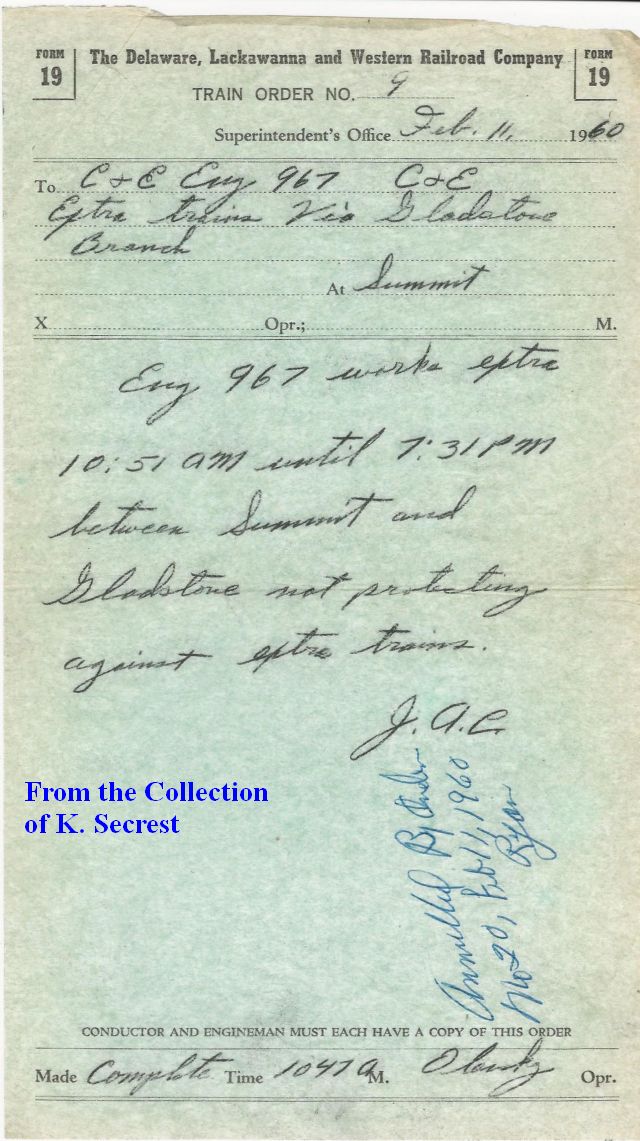 FORM
19
The Delaware, Lackawanna and Western Railroad Company
FORM
19
TRAIN ORDER NO. 9
Superintendent's Office Feb. 11, 1960
To C & E Eng 967 C & E
Extra trains Via Gladstone
Branch
At Summit
X Opr.; M.
Eng 967 works extra
10:51 AM until 7:31 PM
between Summit and
Gladstone not protecting
against extra trains.
J. A. C.
From the Collection
of K. Secrest
Annulled By Order
No-20, Feb 11, 1960
Ryan
CONDUCTOR AND ENGINEMAN MUST EACH HAVE A COPY OF THIS ORDER
Made Complete Time 1047 A M. Opr.